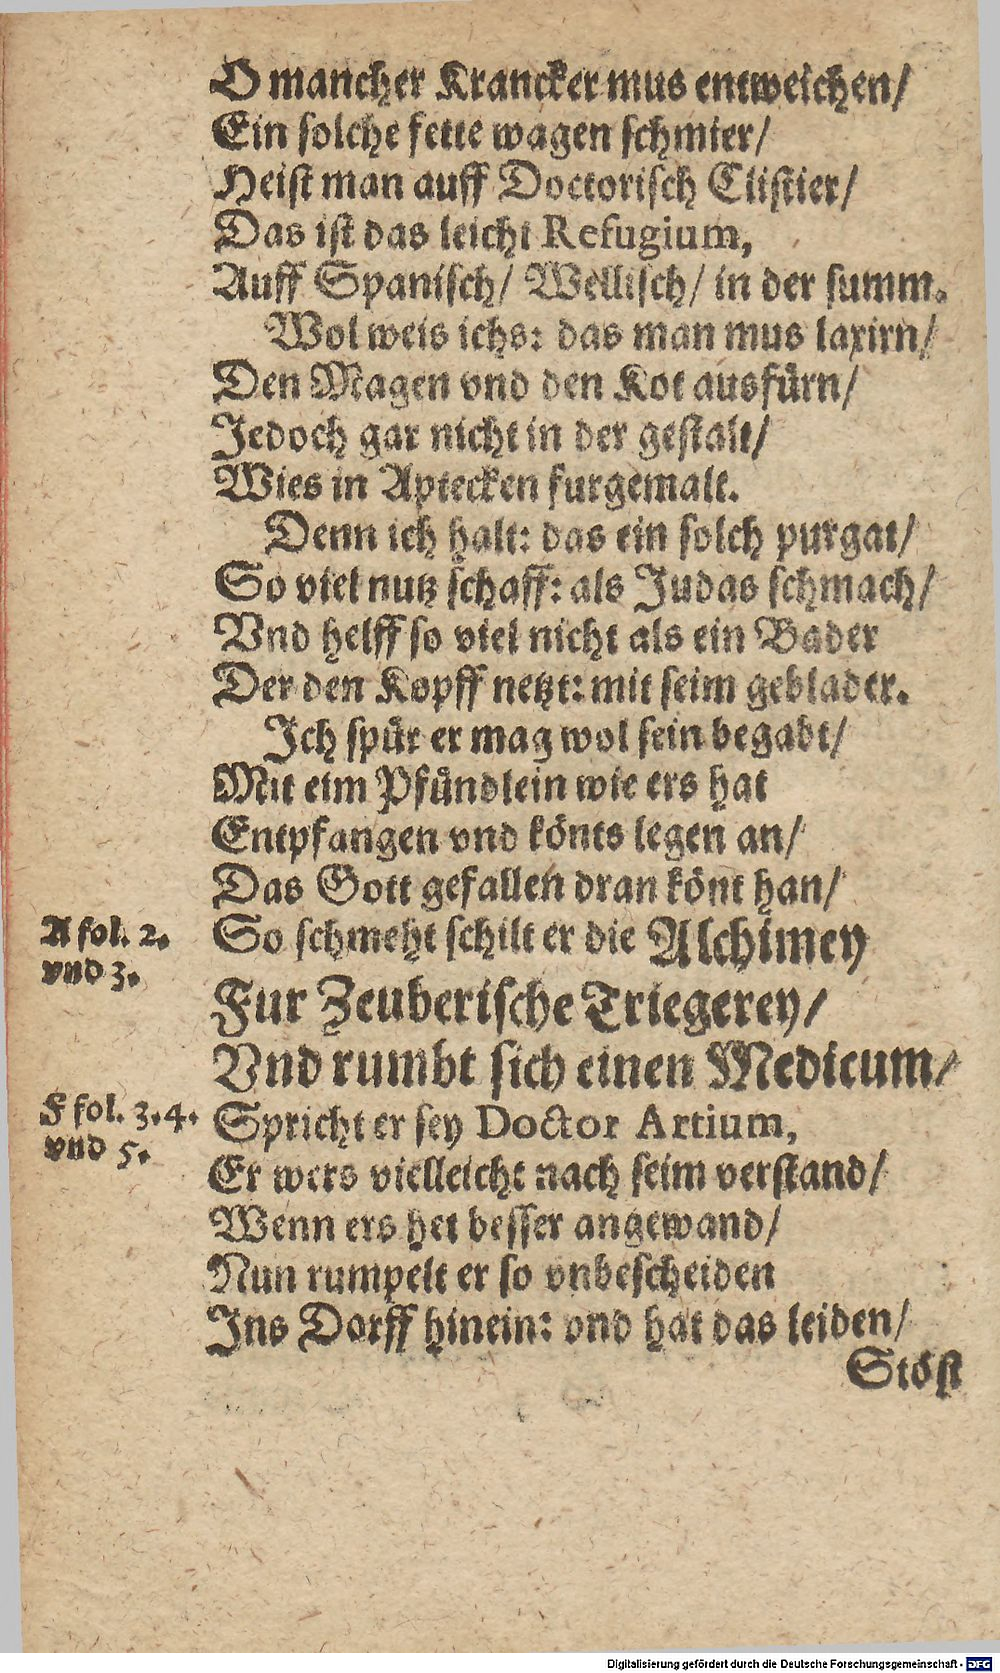 O mancher Krancker mus entweichen/
Ein solche fette wagen schmier/
Heist man auff Doctorisch Clistier/
Das ist das leicht Refugium,
Auff Spanisch/ Wellisch/ in der summ.
Wol weis ichs: das man mus laxirn/
Den Magen vnd den Kot ausfürn/
Jedoch gar nicht in der gestalt/
Wies in Aptecken furgemalt.
Denn ich halt: das ein solch purgat/
So viel nutz schaff: als Judas schmach/
Vnd helff so viel nicht als ein Bader
Der den Kopff netzt: mit seim geblader.
Ich spür er mag wol sein begabt/
Mit eim Pfündlein wie ers hat
Entpfangen vnd könts legen an/
Das Gott gefallen dran könt han/
A fol. 2.
vnd 3.
So schmeht schilt er die Alchimey
Fur Zeuberische Triegerey/
Vnd rumbt sich einen Medicum/
F fol. 3.4.
vnd 5.
Spricht er sey Doctor Artium,
Er wers vielleicht nach seim verstand/
Wenn ers het besser angewand/
Nun rumpelt er so vnbescheiden
Ins Dorff hinein: vnd hat das leiden/
Stöst
Digitalisierung gefördert durch die Deutsche Forschungsgemeinschaft - DFG